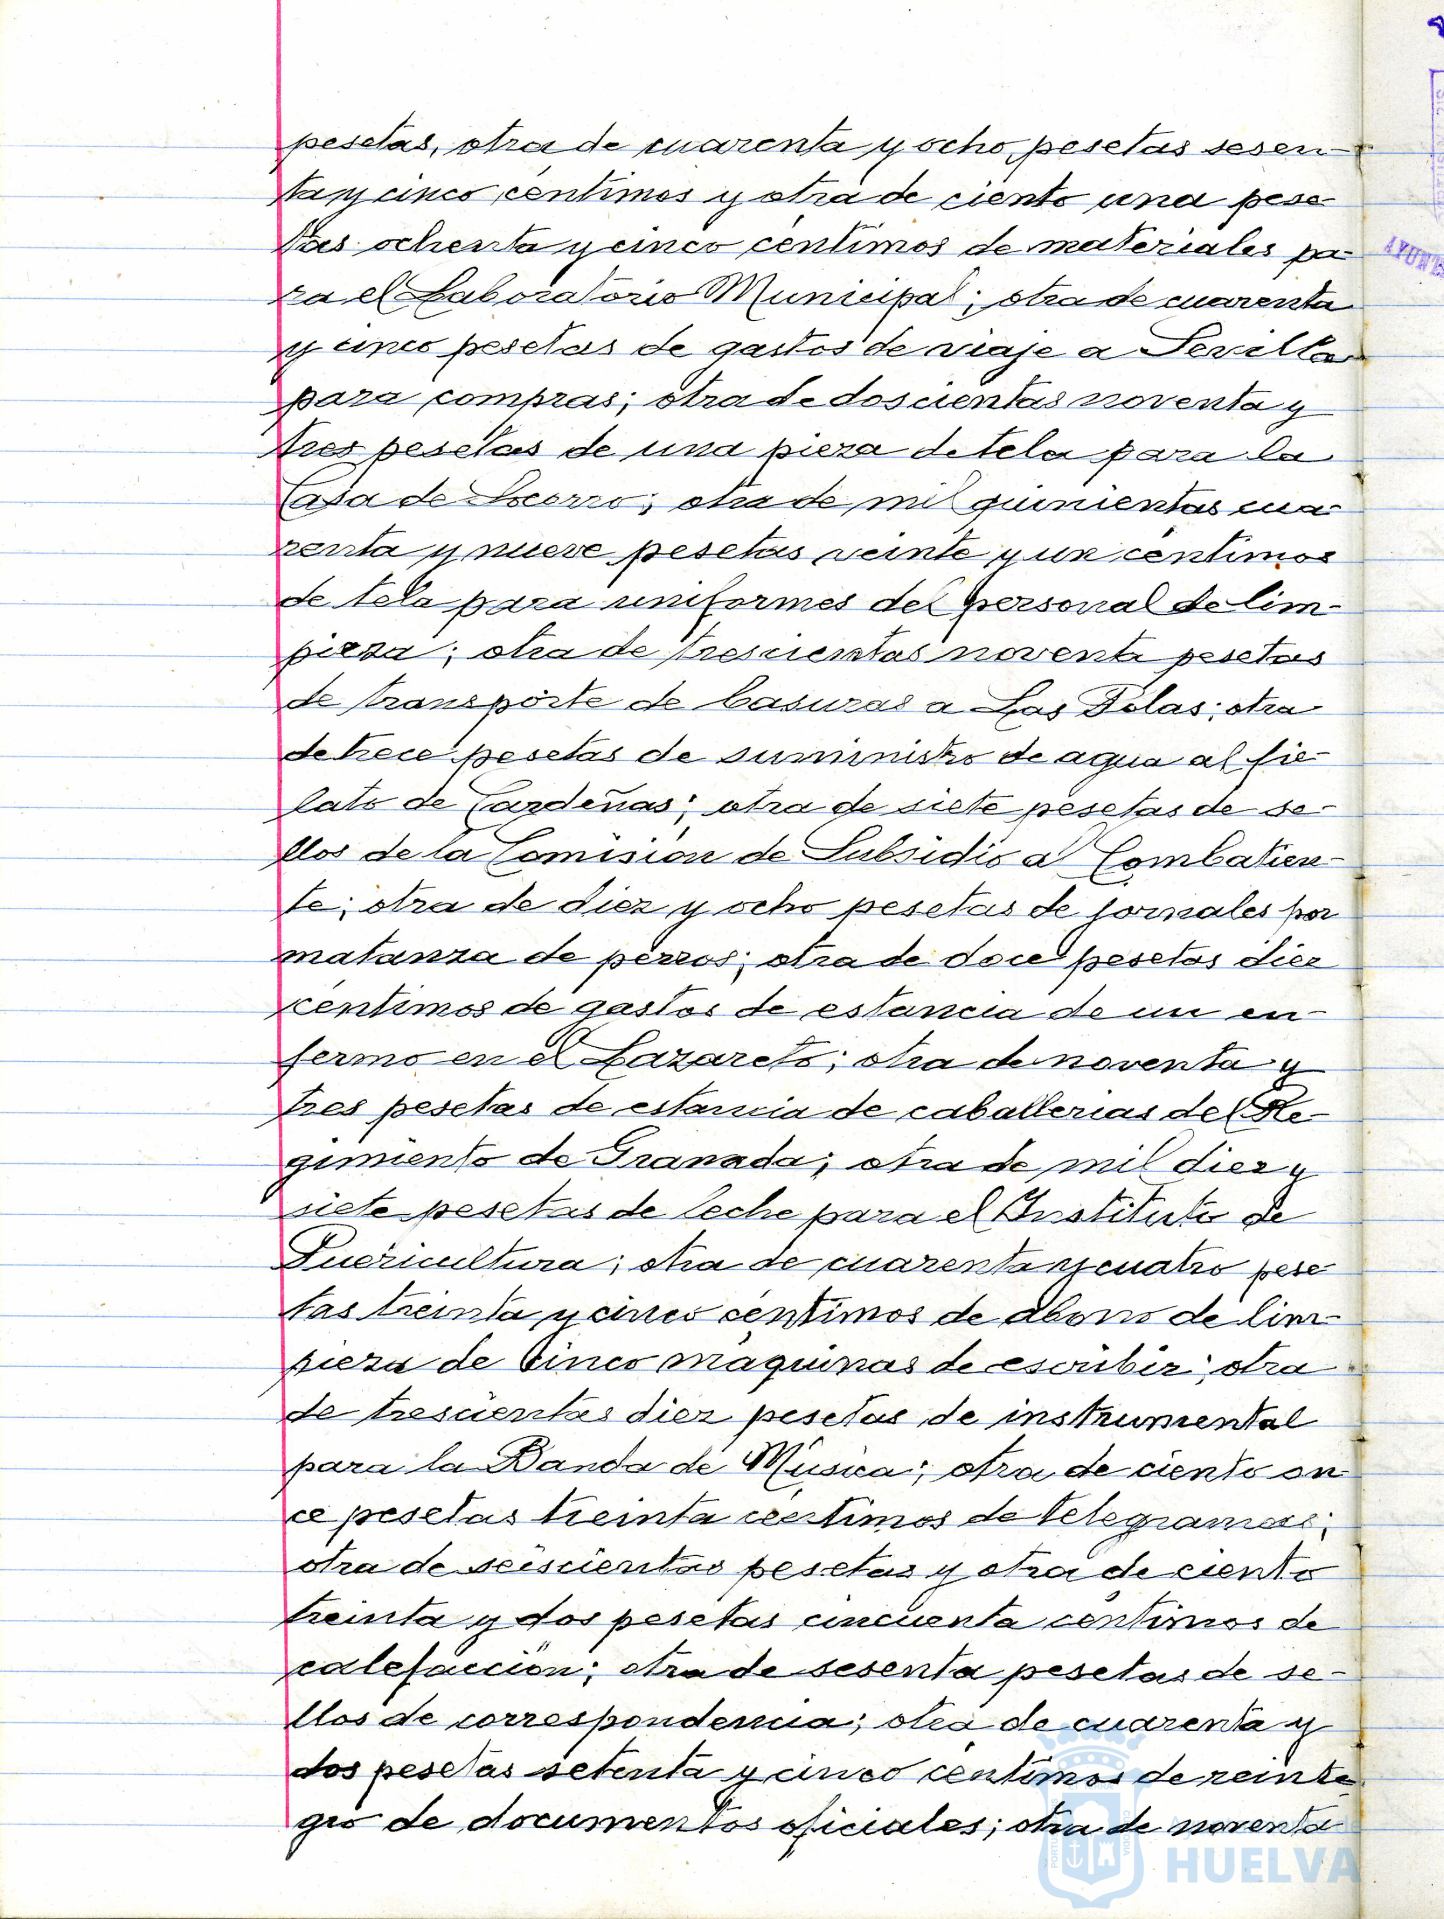 pesetas, otra de cuarenta y ocho pesetas sesen-
ta y cinco centimos y otra de ciento una pese-
tas ochenta y cinco centimos de materiales pa-
ra el Laboratorio Municipal; otra de cuarenta
y cinco pesetas de gastos de viaje a Sevilla
para compras; otra de doscientas noventa y
tres pesetas de una pieza de tela para la
Casa de Socorro; otra de mil quinientas cua-
renta y nueve pesetas veinte y un centimos
de tela para uniformes del personal de lim-
pieza; otra de trescientas noventa pesetas
de transporte de basuras a Las Polas; otra
de trece pesetas de suministro de agua al fie-
lato de Cardeñas; otra de siete pesetas de se-
llos de la Comisión de Subsidio al Combatien-
te; otra de diez y ocho pesetas de jornales por
matanza de perros; otra de doce pesetas diez
centimos de gastos de estancia de un en-
fermo en el Lazareto; otra de noventa y
tres pesetas de estancia de caballerias del Re-
gimiento de Granada; otra de mil diez y
siete pesetas de leche para el Instituto de
Puericultura; otra de cuarenta y cuatro pese-
tas treinta y cinco centimos de abono de lim-
pieza de cinco maquinas de escribir; otra
de trescientas diez pesetas de instrumental
para la Banda de Música; otra de ciento on-
ce pesetas treinta centimos de telegramas;
otra de seiscientas pesetas y otra de ciento
treinta y dos pesetas cincuenta centimos de
calefacción; otra de sesenta pesetas de se-
llos de correspondencia; otra de cuarenta y
dos pesetas setenta y cinco centimos de reinte-
gro de documentos oficiales; otra de noventa
HUELVA